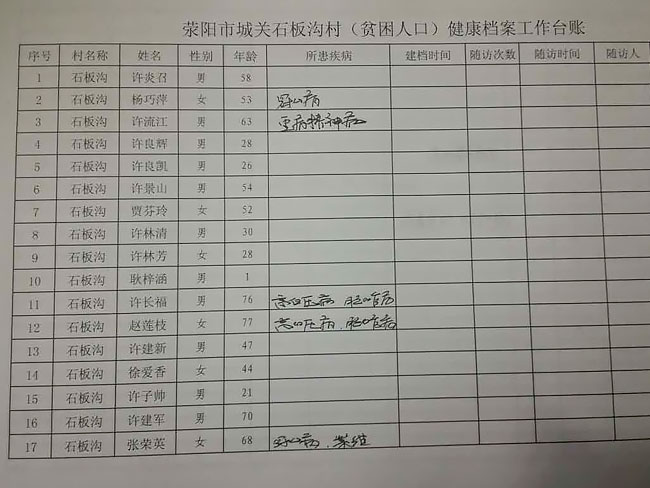 荥阳市城关石板沟村（贫困人口）健康档案工作台账
序号 村名称 姓名 性别 年龄 所患疾病 建档时间 随访次数 随访时间 随访人
1 石板沟 许炎召 男 58
2 石板沟 杨巧萍 女 53 冠心病
3 石板沟 许流江 男 63 重病精神病
4 石板沟 许良辉 男 28
5 石板沟 许良凯 男 26
6 石板沟 许景山 男 54
7 石板沟 贾芬玲 女 52
8 石板沟 许林清 男 30
9 石板沟 许林芳 女 28
10 石板沟 耿梓涵 男 1
11 石板沟 许长福 男 76 高血压病、脑血管病
12 石板沟 赵莲枝 女 77 高血压病、脑血管病
13 石板沟 许建新 男 47
14 石板沟 徐爱香 女 44
15 石板沟 许子帅 男 21
16 石板沟 许建军 男 70
17 石板沟 张荣英 女 68 冠心病、